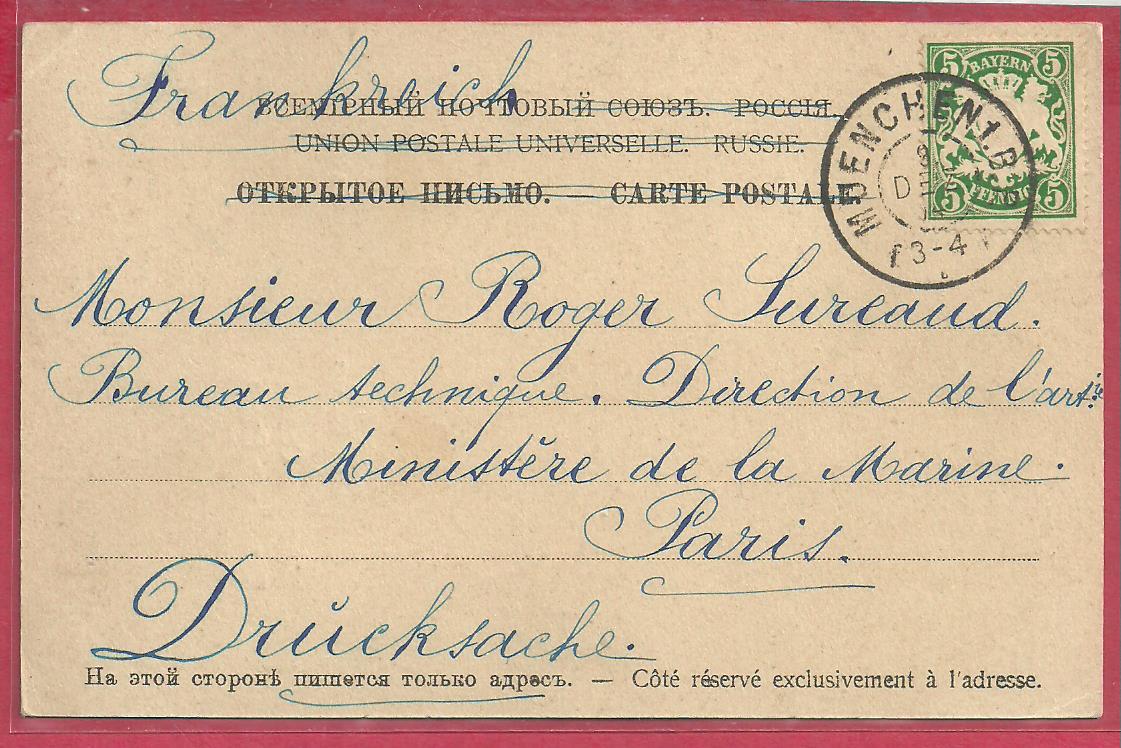 Frankreich
ВСЕМІРНЫЙ ПОЧТОВЫЙ СОЮЗЪ. РОССІЯ.
UNION POSTALE UNIVERSELLE. RUSSIE.
ОТКРЫТОЕ ПИСЬМО. — CARTE POSTALE
5 BAYERN 5
5 PFENNIG 5
MUENCHEN.1.B.
DEZ
3-4
Monsieur Roger Sureaud.
Bureau technique. Direction de l'art.ie
Ministère de la Marine.
Paris.
Drŭcksache.
На этой сторонѣ пишется только адресъ. — Côté réservé exclusivement à l'adresse.